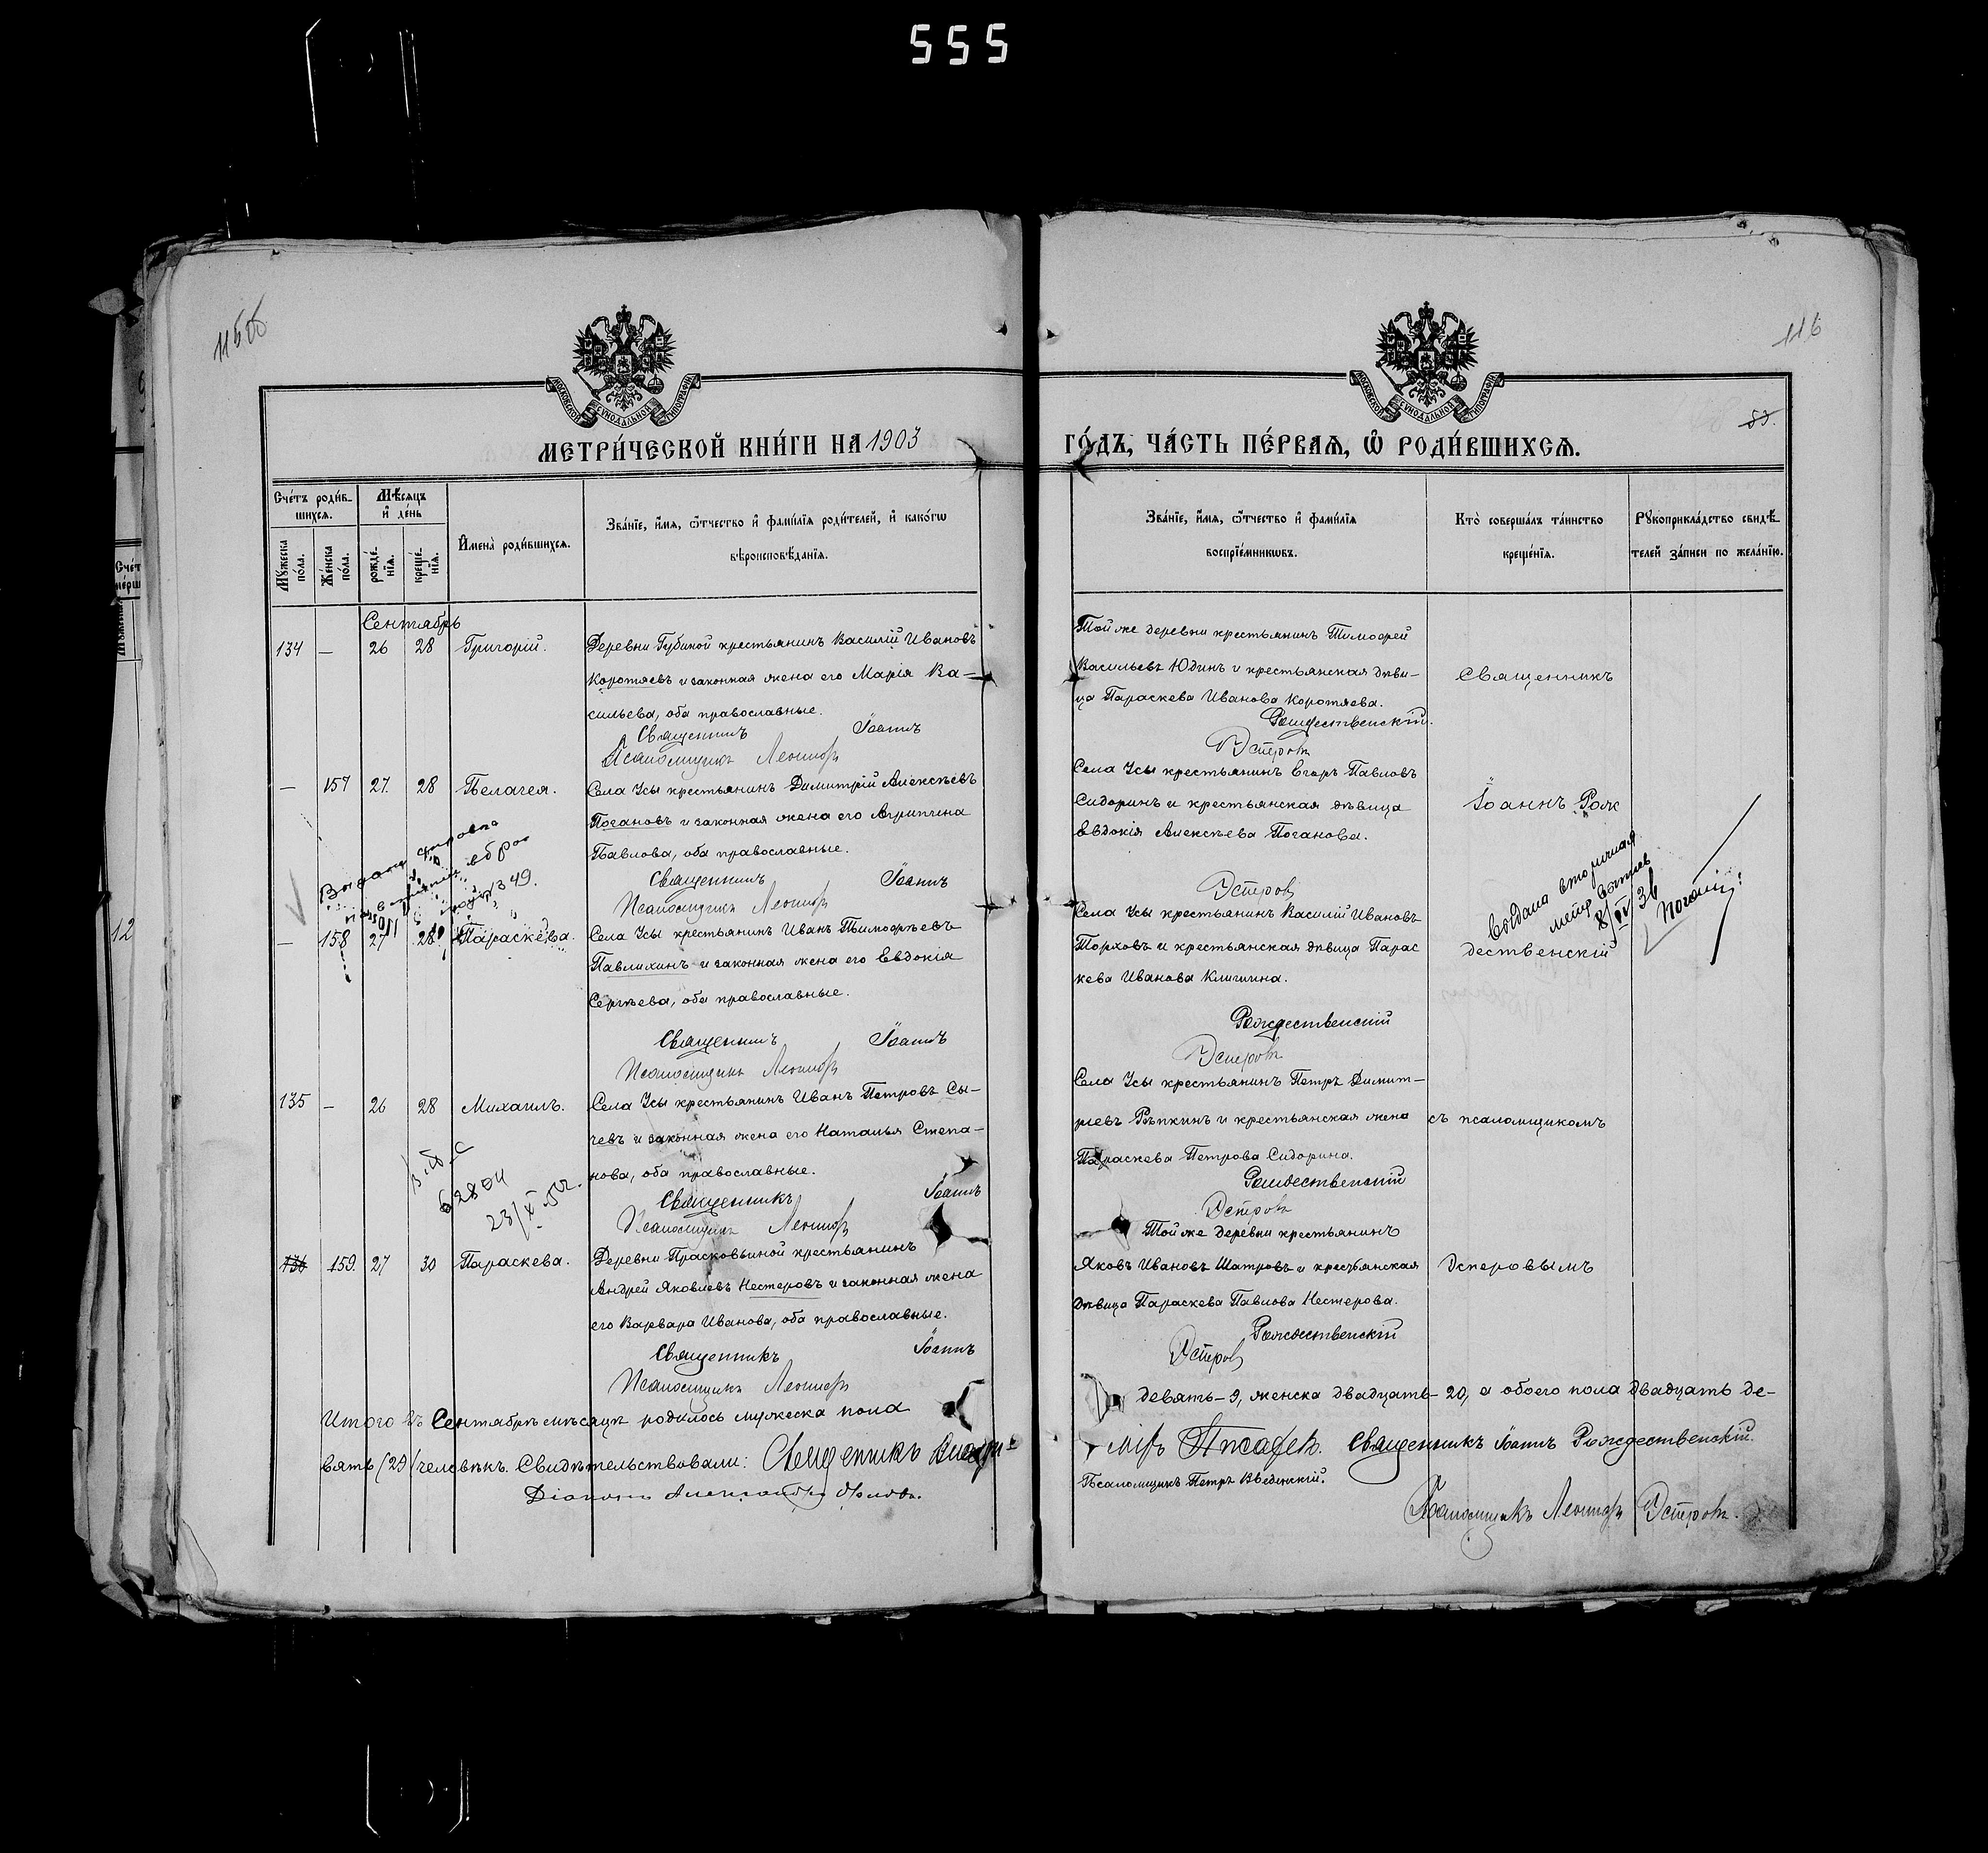 555
115об
116
МОСКОВСКОЙ СѴНОДАЛЬНОЙ ТИПОГРАФІИ
МОСКОВСКОЙ СѴНОДАЛЬНОЙ ТИПОГРАФІИ
83.
МЕТРИ́ЧЕСКОЙ КНИ́ГИ НА 1903 ГО́ДЪ, ЧА́СТЬ ПЕ́РВАѦ, Ѡ РОДИ́ВШИХСѦ.
Сче́тъ роди́в-
шихсѧ.
Мѣ́сѧцъ
и҆ де́нь
Мꙋ́жеска по́ла.
Же́нска по́ла.
рожде́нїѧ.
креще́нїѧ.
И҆мена̀ роди́вшихсѧ.
Зва́нїе, и҆́мѧ, ѻ҆́тчество и҆ фами́лїѧ роди́телей, и҆ како́гѡ
вѣроисповѣ́данїѧ.
Зва́нїе, и҆́мѧ, ѻ҆́тчество и҆ фами́лїѧ
воспрїе́мникѡвъ.
Кто̀ соверша́лъ та́инство
креще́нїѧ.
Рꙋкоприкла́дство свидѣ́-
телей за́писи по жела́нїю.
Сентябрь
134 — 26 28 Григорій.
Деревни Губиной крестьянинъ Василій Ивановъ
Коротяевъ и законная жена его Марія Ва-
сильева, оба православные.
Священникъ Іоаннъ
Псаломщикъ Леонидъ
Той же деревни крестьянинъ Тимоѳей
Васильевъ Юдинъ и крестьянская дѣви-
ца Параскева Иванова Коротяева.
Рождественскій.
Эсперовъ
Священникъ
— 157 27. 28 Пелагея.
Села Усы крестьянинъ Димитрій Алексѣевъ
Погановъ и законная жена его Агрипина
Павлова, оба православные.
Священникъ Іоаннъ
Псаломщикъ Леонидъ
Села Усы крестьянинъ Егоръ Павловъ
Сидоринъ и крестьянская дѣвица
Евдокія Алексѣева Поганова.
Эсперовъ
Іоаннъ Рож
Выдана справка
1349.
выдана вторичная
метр
8/IV 36
— 158 27 28 Параскева.
Села Усы крестьянинъ Иванъ Тимоѳеевъ
Павлихинъ и законная жена его Евдокія
Сергѣева, оба православные.
Священникъ Іоаннъ
Псаломщикъ Леонидъ
Села Усы крестьянинъ Василій Ивановъ
Торховъ и крестьянская дѣвица Парас
кева Иванова Клишина.
Рождественскій
Эсперовъ
дественскій
135 — 26 28 Михаилъ.
Села Усы крестьянинъ Иванъ Петровъ Сы-
чевъ и законная жена его Наталья Степа-
нова, оба православные.
Священникъ Іоаннъ
Псаломщикъ Леонидъ
Села Усы крестьянинъ Петръ Димит-
ріевъ Рѣпкинъ и крестьянская жена
Параскева Петрова Сидорина.
Рождественскій
Эсперовъ
съ псаломщикомъ
136 159. 27 30 Параскева.
Деревни Прасковьиной крестьянинъ
Андрей Яковлевъ Нестеровъ и законная жена
его Варвара Иванова, оба православные.
Священникъ Іоаннъ
Псаломщикъ Леонидъ
Той же деревни крестьянинъ
Яковъ Ивановъ Шатровъ и крестьянская
дѣвица Параскева Павлова Нестерова.
Рождественскій
Эсперовъ
Эсперовымъ
Итого въ Сентябрѣ мѣсяцѣ родилось мужеска пола девять-9, женска двадцать-20, а обоего пола двадцать де-
вять (29) человѣкъ. Свидѣтельствовали: Священникъ Влади- міръ Священникъ Іоаннъ Рождественскій.
Діаконъ Александръ Бѣловъ. Псаломщикъ Петръ Введенскій.
Псаломщикъ Леонидъ Эсперовъ.